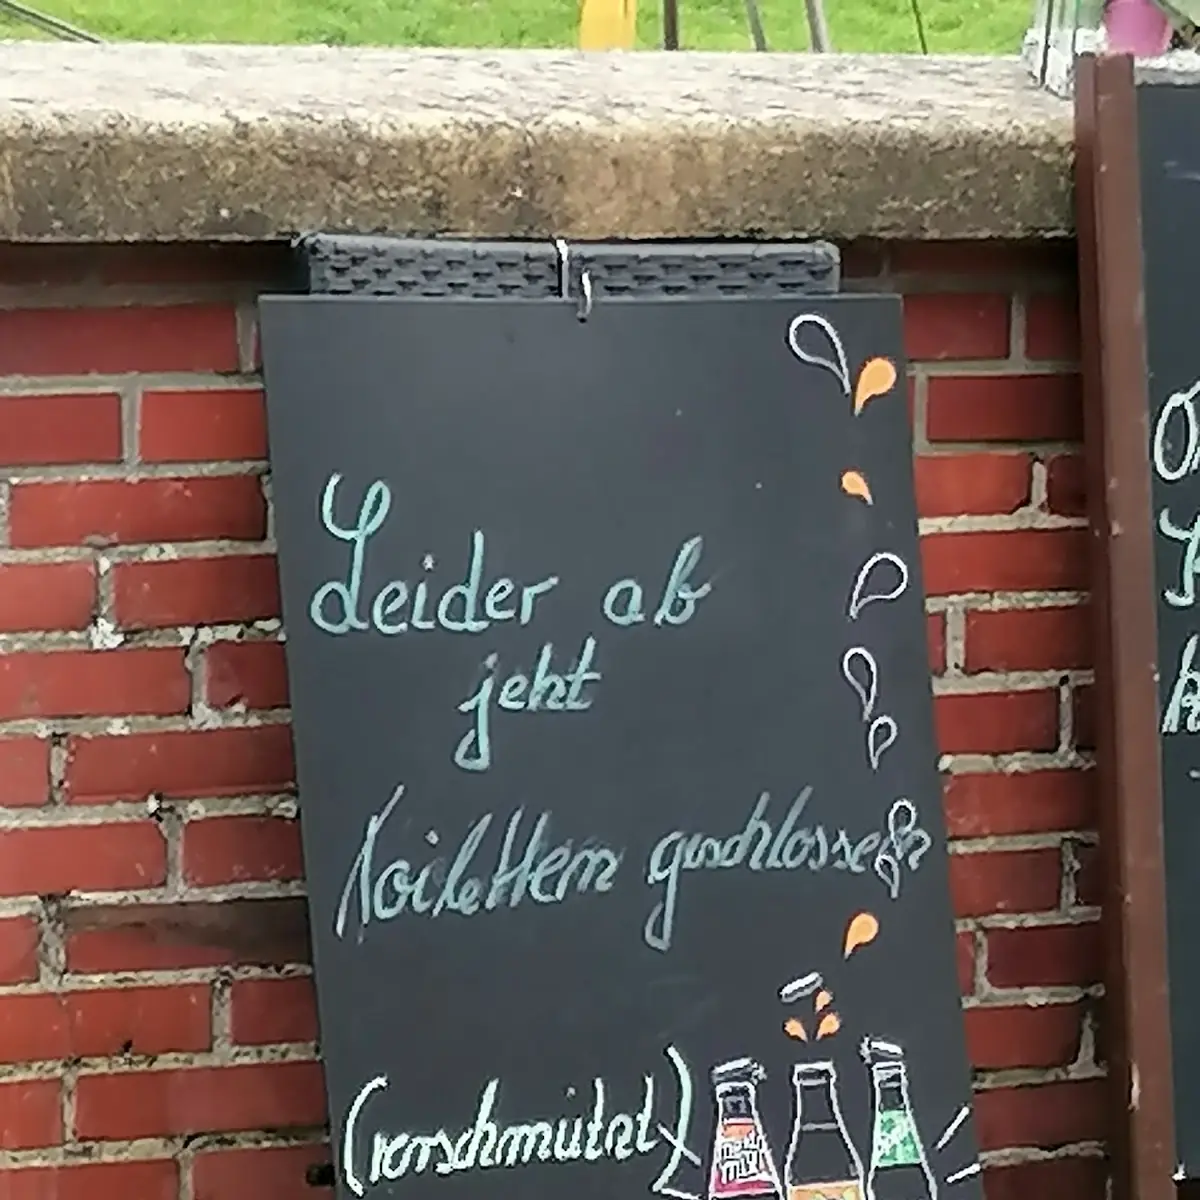 Leider ab
jetzt
Toiletten geschlossen
(verschmutzt)